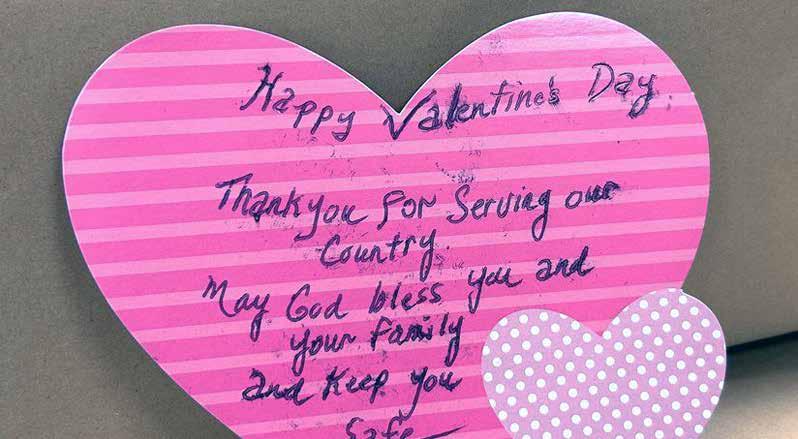 Happy Valentine's Day.
Thank you For Serving our
Country.
May God bless you and
your Family
and Keep you
Safe